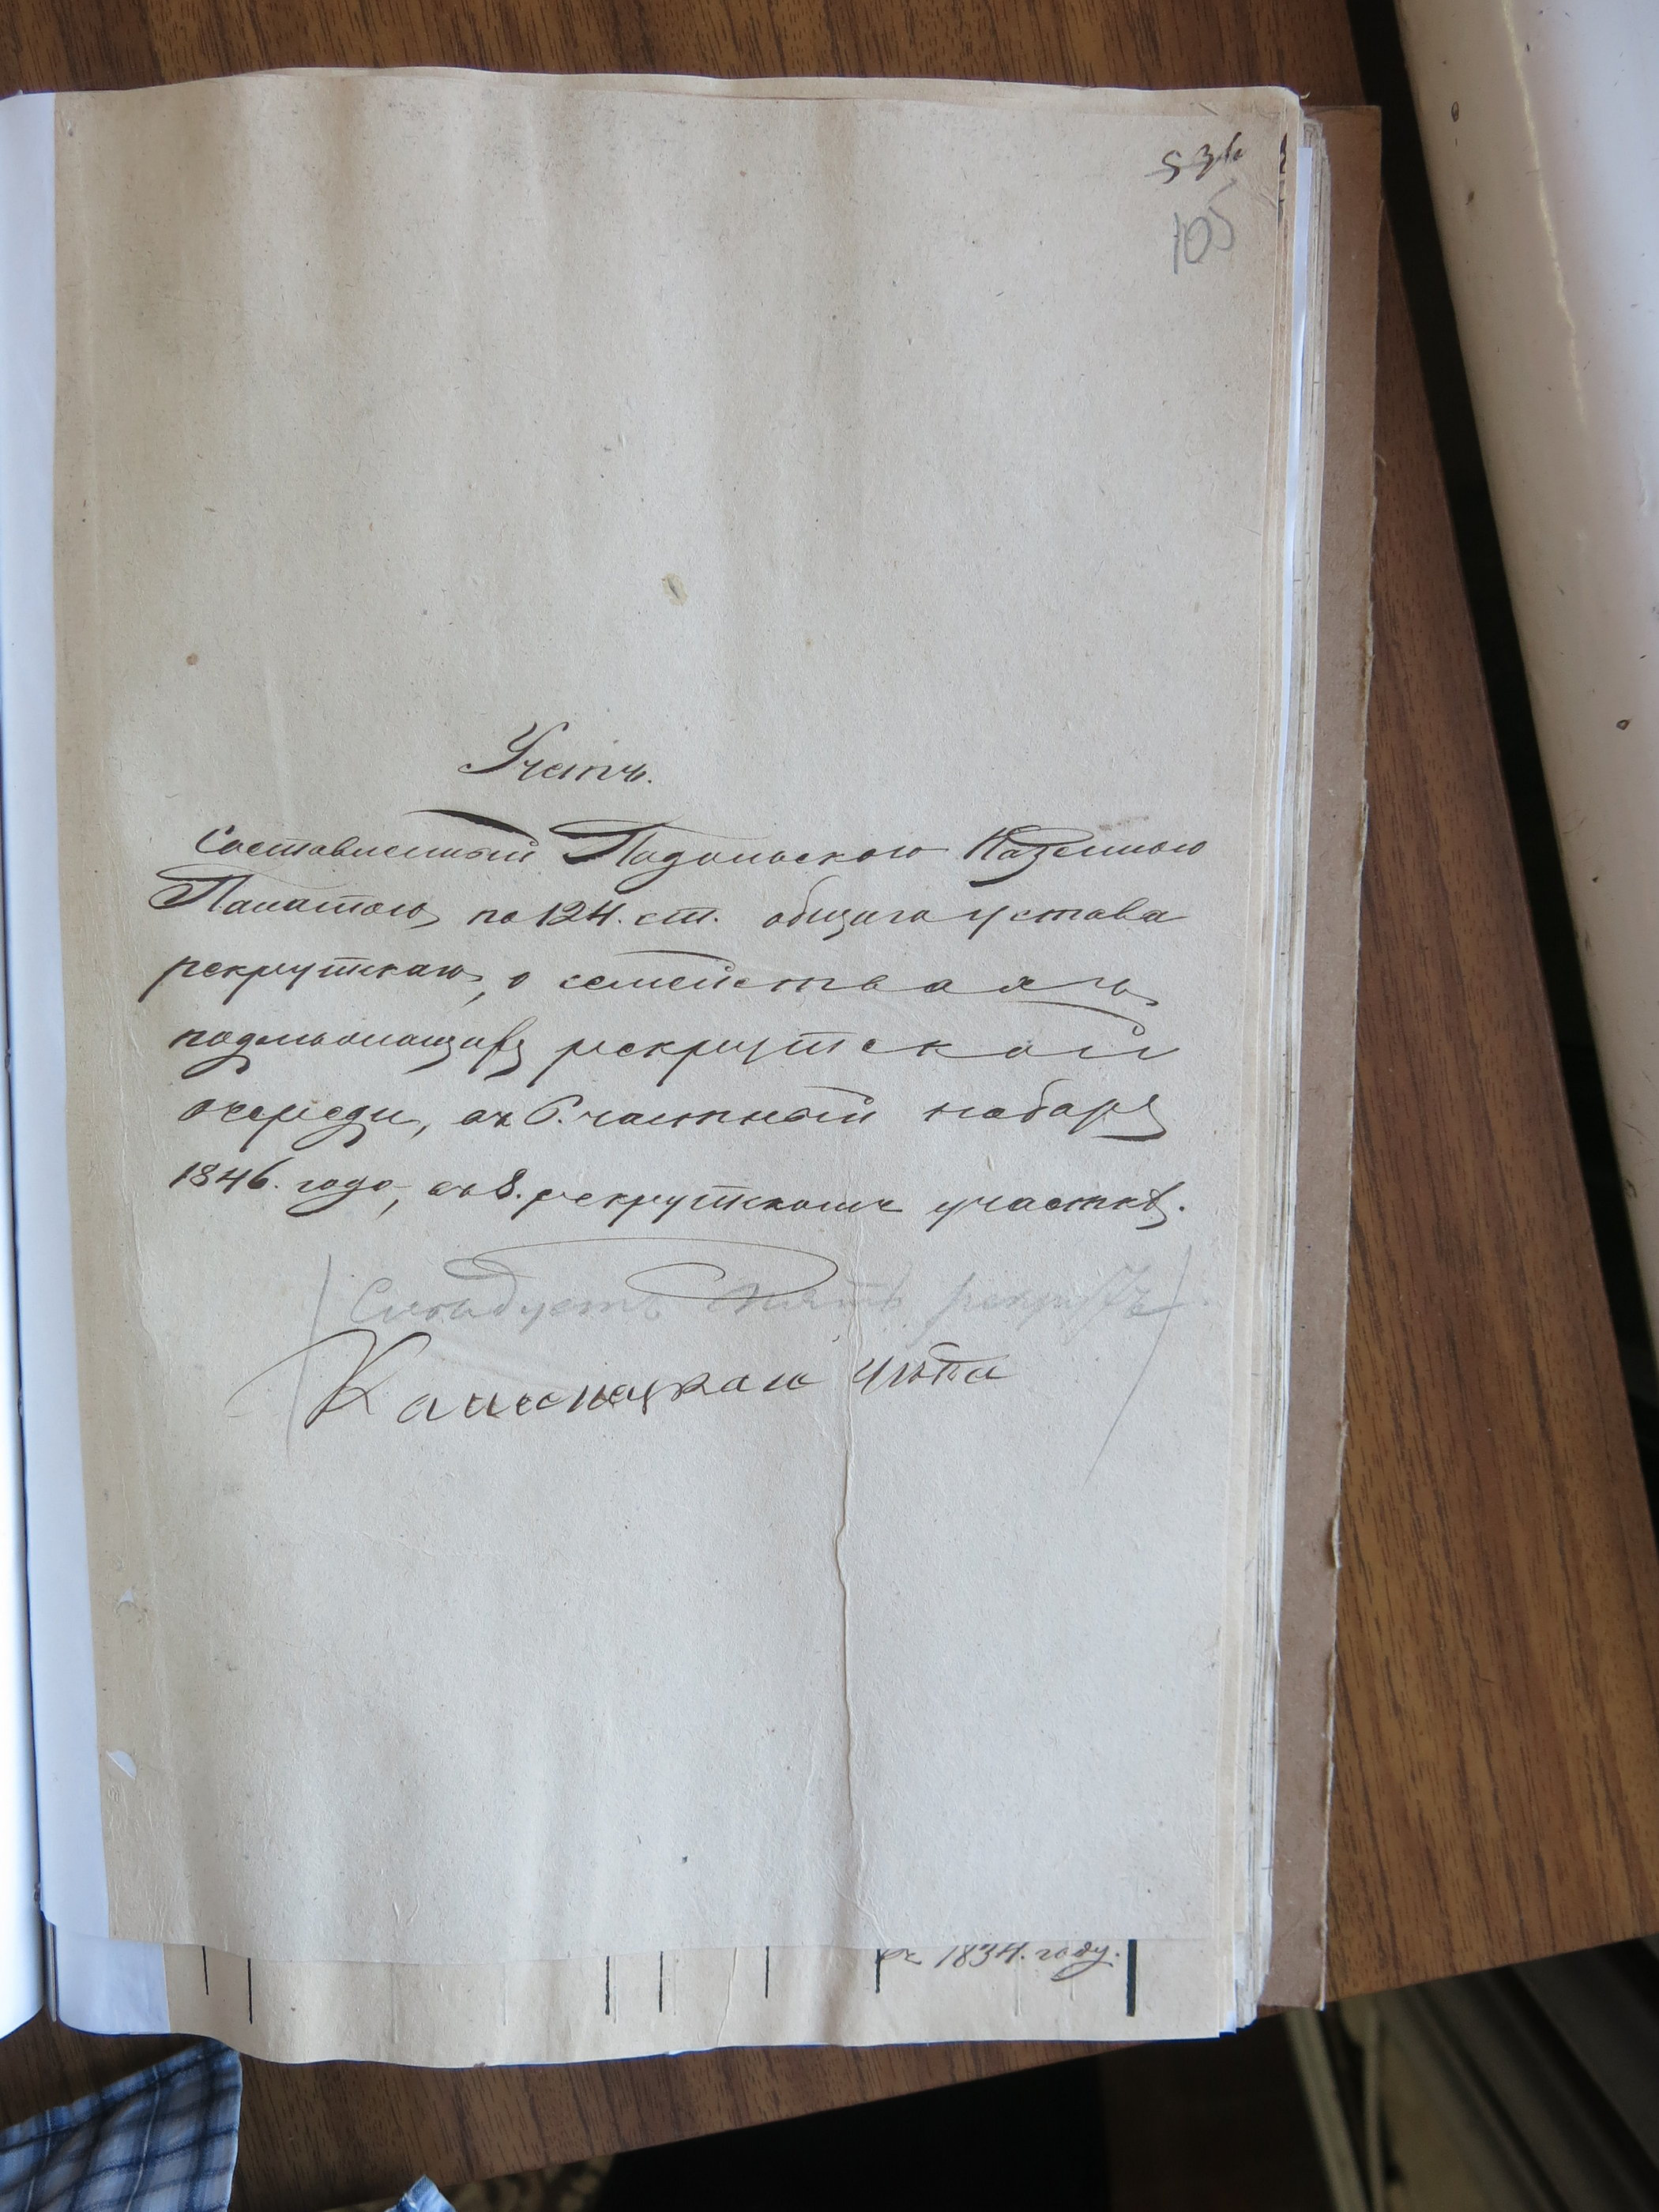 536
105
Учетъ.
Составленный Подольскою Казенною
Палатою, по 124. ст. общаго устава
рекрутскаго, о семействахъ
подлежащихъ рекрутской
очереди, въ 6. частный наборъ
1846. года, въ 8. рекрутскомъ участкѣ.
Слѣдуетъ рекрутъ
Каменецкаго уѣзда
въ 1834. году.